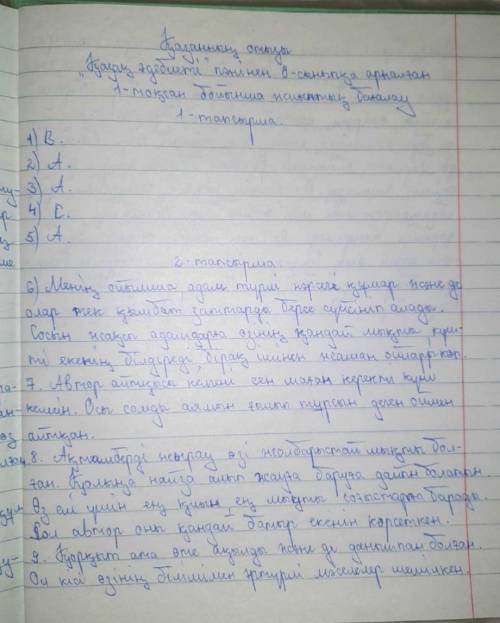 Қазанның отызы
"Қазақ әдебиеті" пәнінен 8-сыныпқа арналған
1-тоқсан бойынша жиынтық бағалау
1-тапсырма.
1) В.
2) А.
3) А.
4) Е.
5) А.
2-тапсырма
6) Менің ойымша адам түрлі нәрсеге құмар және де
олар тек қымбат заттарды берсе сүйсініп алады.
Сосын жақсы адамдарға өзінің қандай мықты,
екенін білдіреді, бірақ ішінен жаман ойлары көп.
7. Автор айтқысы келгені сен маған керекті күні
келмен. Осы сөзді аялын тұрсын деген оймен
айтқан.
8. Ақтамберді жырау өзі жолбарыстай мықты бол-
ған. Қолында найза алып жауға баруға дайын болатын
Өз елі үшін ең қиын ең мықты соғыстарға барады.
Бұл автор оны қандай батыр екенін көрсеткен.
9. Қорқыт ата өте ақылды және де данышпан болған.
Ол кісі өзінің білімімен әртүрлі мәселелер шешілкен.